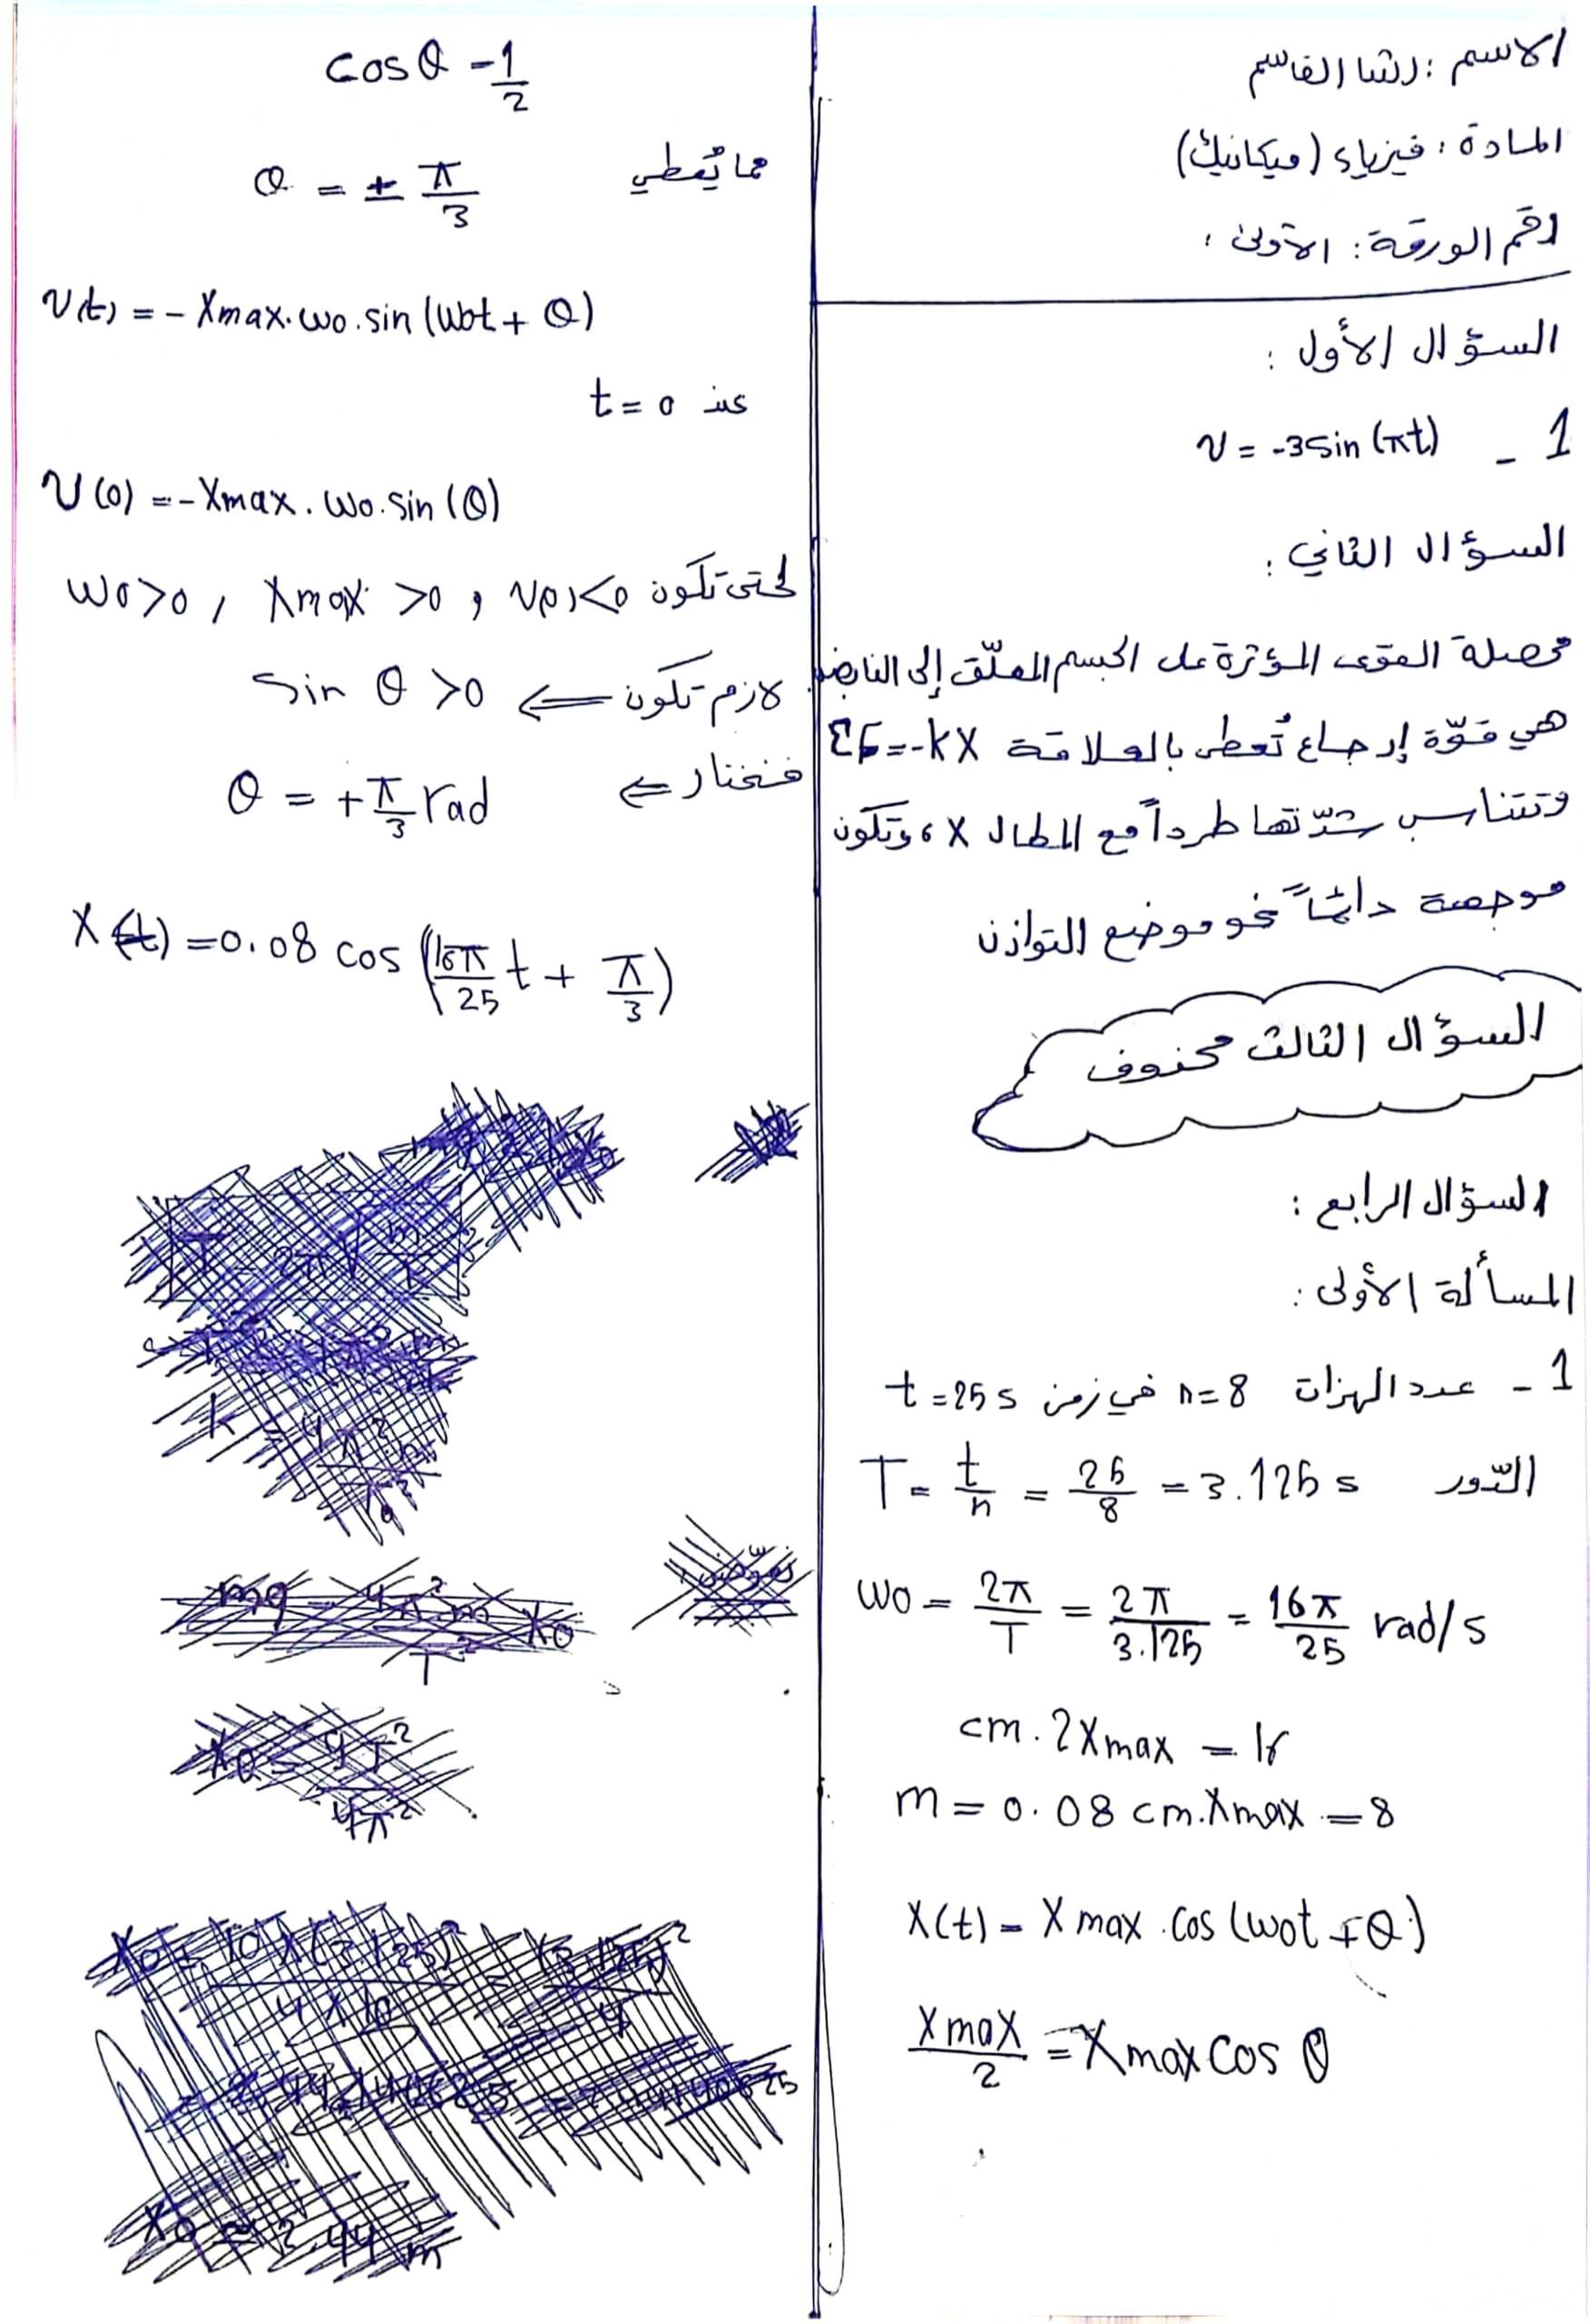 الاسم : رشا القاسم
المادة : فيزياء (ميكانيك)
رقم الورقة : الأولى .
السؤال الأول :
1 - v = -3 sin (πt)
السؤال الثاني :
محصلة القوى المؤثرة على الجسم المعلّق إلى النابض
هي قوّة إرجاع تُعطى بالعلاقة ΣF = -kX
وتتناسب شدّتها طرداً مع المطال X ، وتكون
موجهة دائماً نحو موضع التوازن
السؤال الثالث محذوف
السؤال الرابع :
المسألة الأولى :
1 - عدد الهزات n = 8 في زمن t = 25 s
الدّور T = t/n = 25/8 = 3.125 s
ω0 = 2π/T = 2π/3.125 = 16π/25 rad/s
cm . 2Xmax = 16
m = 0.08 cm . Xmax = 8
X(t) = Xmax . cos (ω0t + θ)
Xmax/2 = Xmax cos θ
cos θ = 1/2
مما يُعطي θ = ± π/3
v(t) = - Xmax . ω0 . sin (ω0t + θ)
عند t = 0
v(0) = - Xmax . ω0 . sin (θ)
لحتى تكون v(0)<0 , Xmax >0 , ω0>0
لازم تكون ⇐ sin θ >0
فنختار ⇐ θ = + π/3 rad
X(t) = 0.08 cos (16π/25 t + π/3)